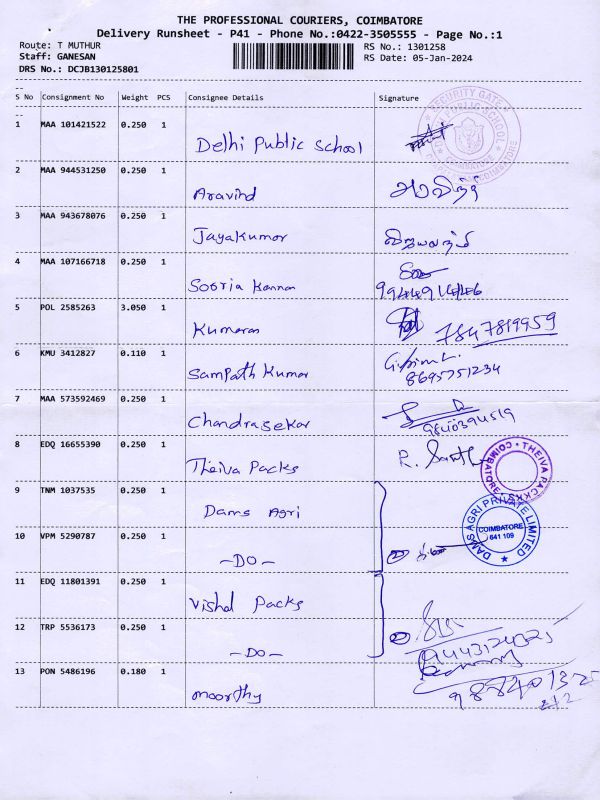 THE PROFESSIONAL COURIERS, COIMBATORE
Delivery Runsheet - P41 - Phone No.:0422-3505555 - Page No.:1
Route: T MUTHUR
RS No.: 1301258
Staff: GANESAN
RS Date: 05-Jan-2024
DRS No.: DCJB130125801
S No Consignment No Weight PCS Consignee Details Signature
1 MAA 101421522 0.250 1 Delhi Public School
SECURITY GATE
COIMBATORE
2 MAA 944531250 0.250 1 Aravind அரவிந்த்
3 MAA 943678076 0.250 1 Jayakumar
4 MAA 107166718 0.250 1 Sooria Kannan
9944914446
5 POL 2585263 3.050 1 Kumaran 7847819959
6 KMU 3412827 0.110 1 Sampath Kumar
8695751234
7 MAA 573592469 0.250 1 Chandrasekar
9840394519
8 EDQ 16655390 0.250 1 Theiva Packs R.
THEIVA PACKS COIMBATORE
9 TNM 1037535 0.250 1 Dams Agri
DAMS AGRI PRIVATE LIMITED
COIMBATORE
641 109
10 VPM 5290787 0.250 1 -DO-
11 EDQ 11801391 0.250 1 Vishal Packs
12 TRP 5536173 0.250 1 -DO-
13 PON 5486196 0.180 1 moorthy